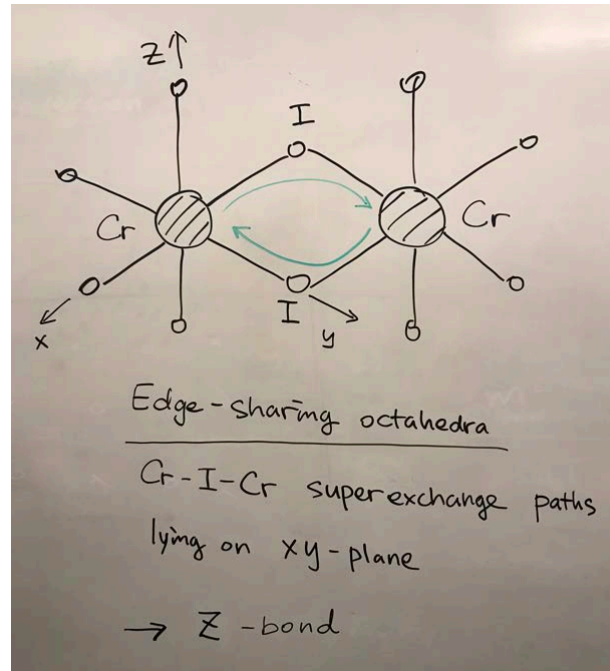 Z
I
Cr
Cr
I
y
x
Edge-sharing octahedra
Cr-I-Cr superexchange paths
lying on xy-plane
→ Z-bond